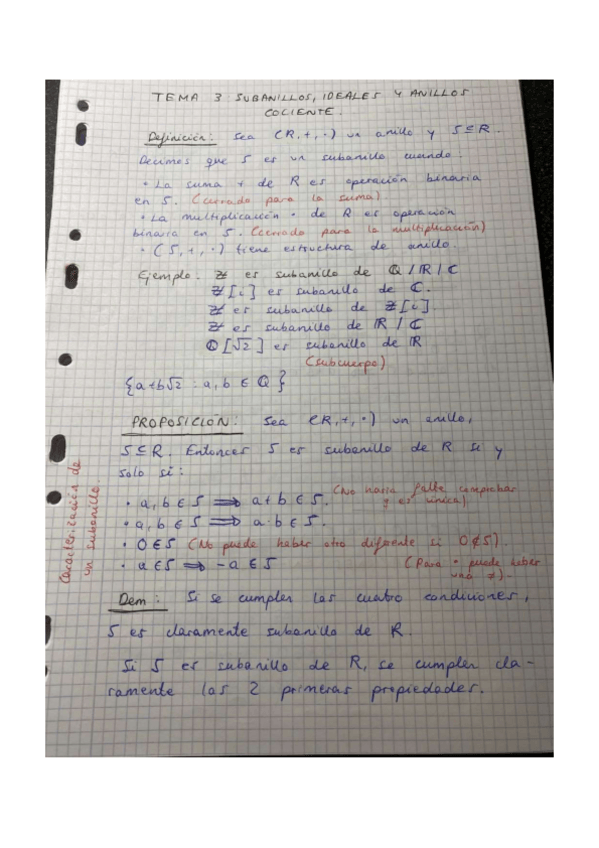 TEMA 3: SUBANILLOS, IDEALES Y ANILLOS
COCIENTE.
Definición: Sea (R,+,·) un anillo y S⊆R.
Decimos que S es un subanillo cuando:
• La suma + de R es operación binaria
en S. (cerrado para la suma)
• La multiplicación · de R es operación
binaria en S. (cerrado para la multiplicación)
• (S,+,·) tiene estructura de anillo.
Ejemplo. ℤ es subanillo de ℚ/ℝ/ℂ
ℤ[i] es subanillo de ℂ.
ℤ es subanillo de ℤ[i].
ℤ es subanillo de ℝ/ℂ
ℚ[√2] es subanillo de ℝ
(subcuerpo)
{a+b√2 : a, b ∈ ℚ}
PROPOSICIÓN: Sea (R,+,·) un anillo,
S⊆R. Entonces S es subanillo de R si y
solo si:
• a, b ∈ S ⟹ a+b ∈ S. (No haría falta comprobar
y es única)
• a, b ∈ S ⟹ a·b ∈ S.
• 0∈S (No puede haber otro diferente si 0∉S).
• a∈S ⟹ -a∈S (Para · puede haber
uno ≠)
Caracterización de
un subanillo.
Dem: Si se cumplen las cuatro condiciones,
S es claramente subanillo de R.
Si S es subanillo de R, se cumplen cla-
ramente las 2 primeras propiedades.